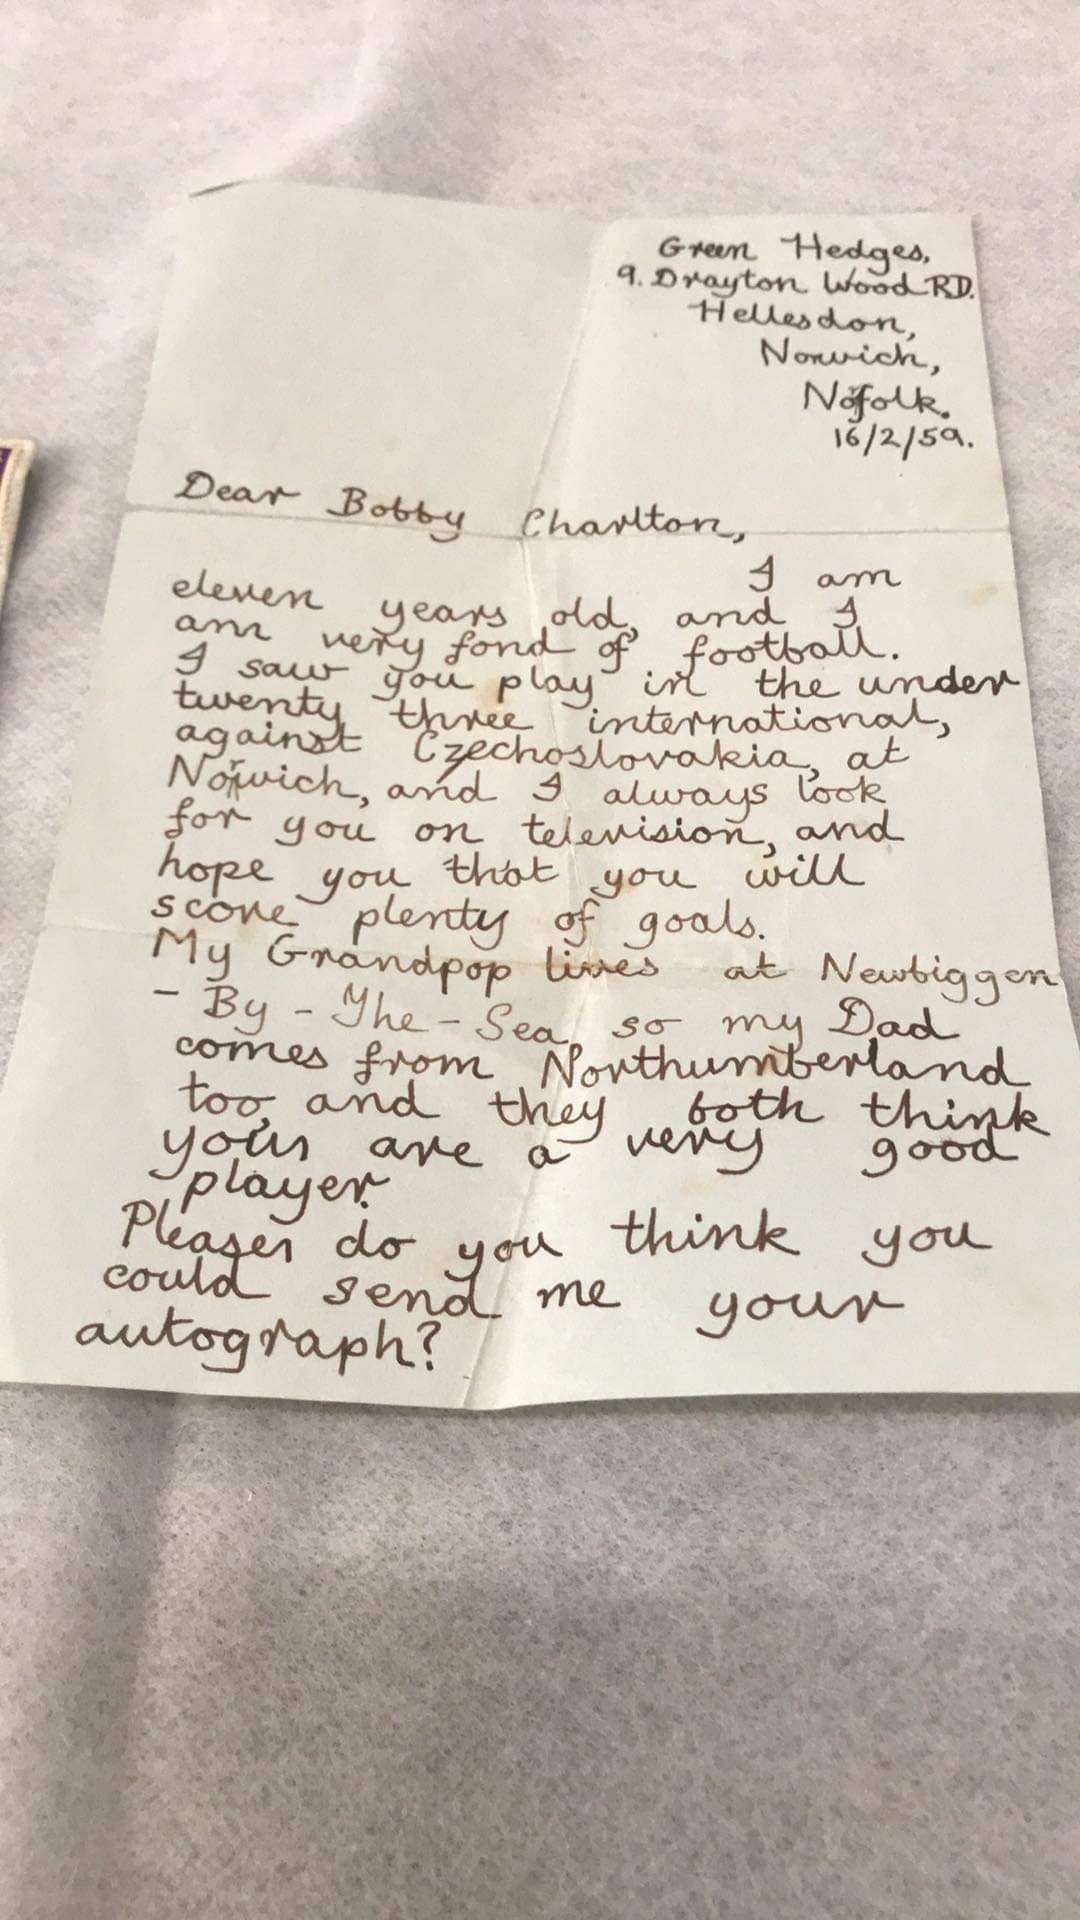 Green Hedges,
9. Drayton Wood RD.
Hellesdon,
Norwich,
Nofolk.
16/2/59.
Dear Bobby Charlton,
I am
eleven years old, and I
am very fond of football.
I saw you play in the under
twenty three international,
against Czechoslovakia, at
Norwich, and I always look
for you on television, and
hope you that you will
score plenty of goals.
My Grandpop lives at Newbiggen
- By - The - Sea, so my Dad
comes from Northumberland
too, and they both think
your are a very good
player.
Pleaser do you think you
could send me your
autograph?